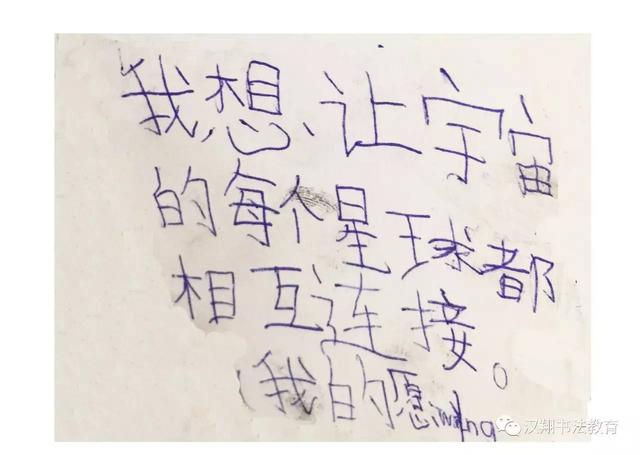 我想让宇宙
的每个星球都
相互连接。
(我的愿wang
汉翔书法教育